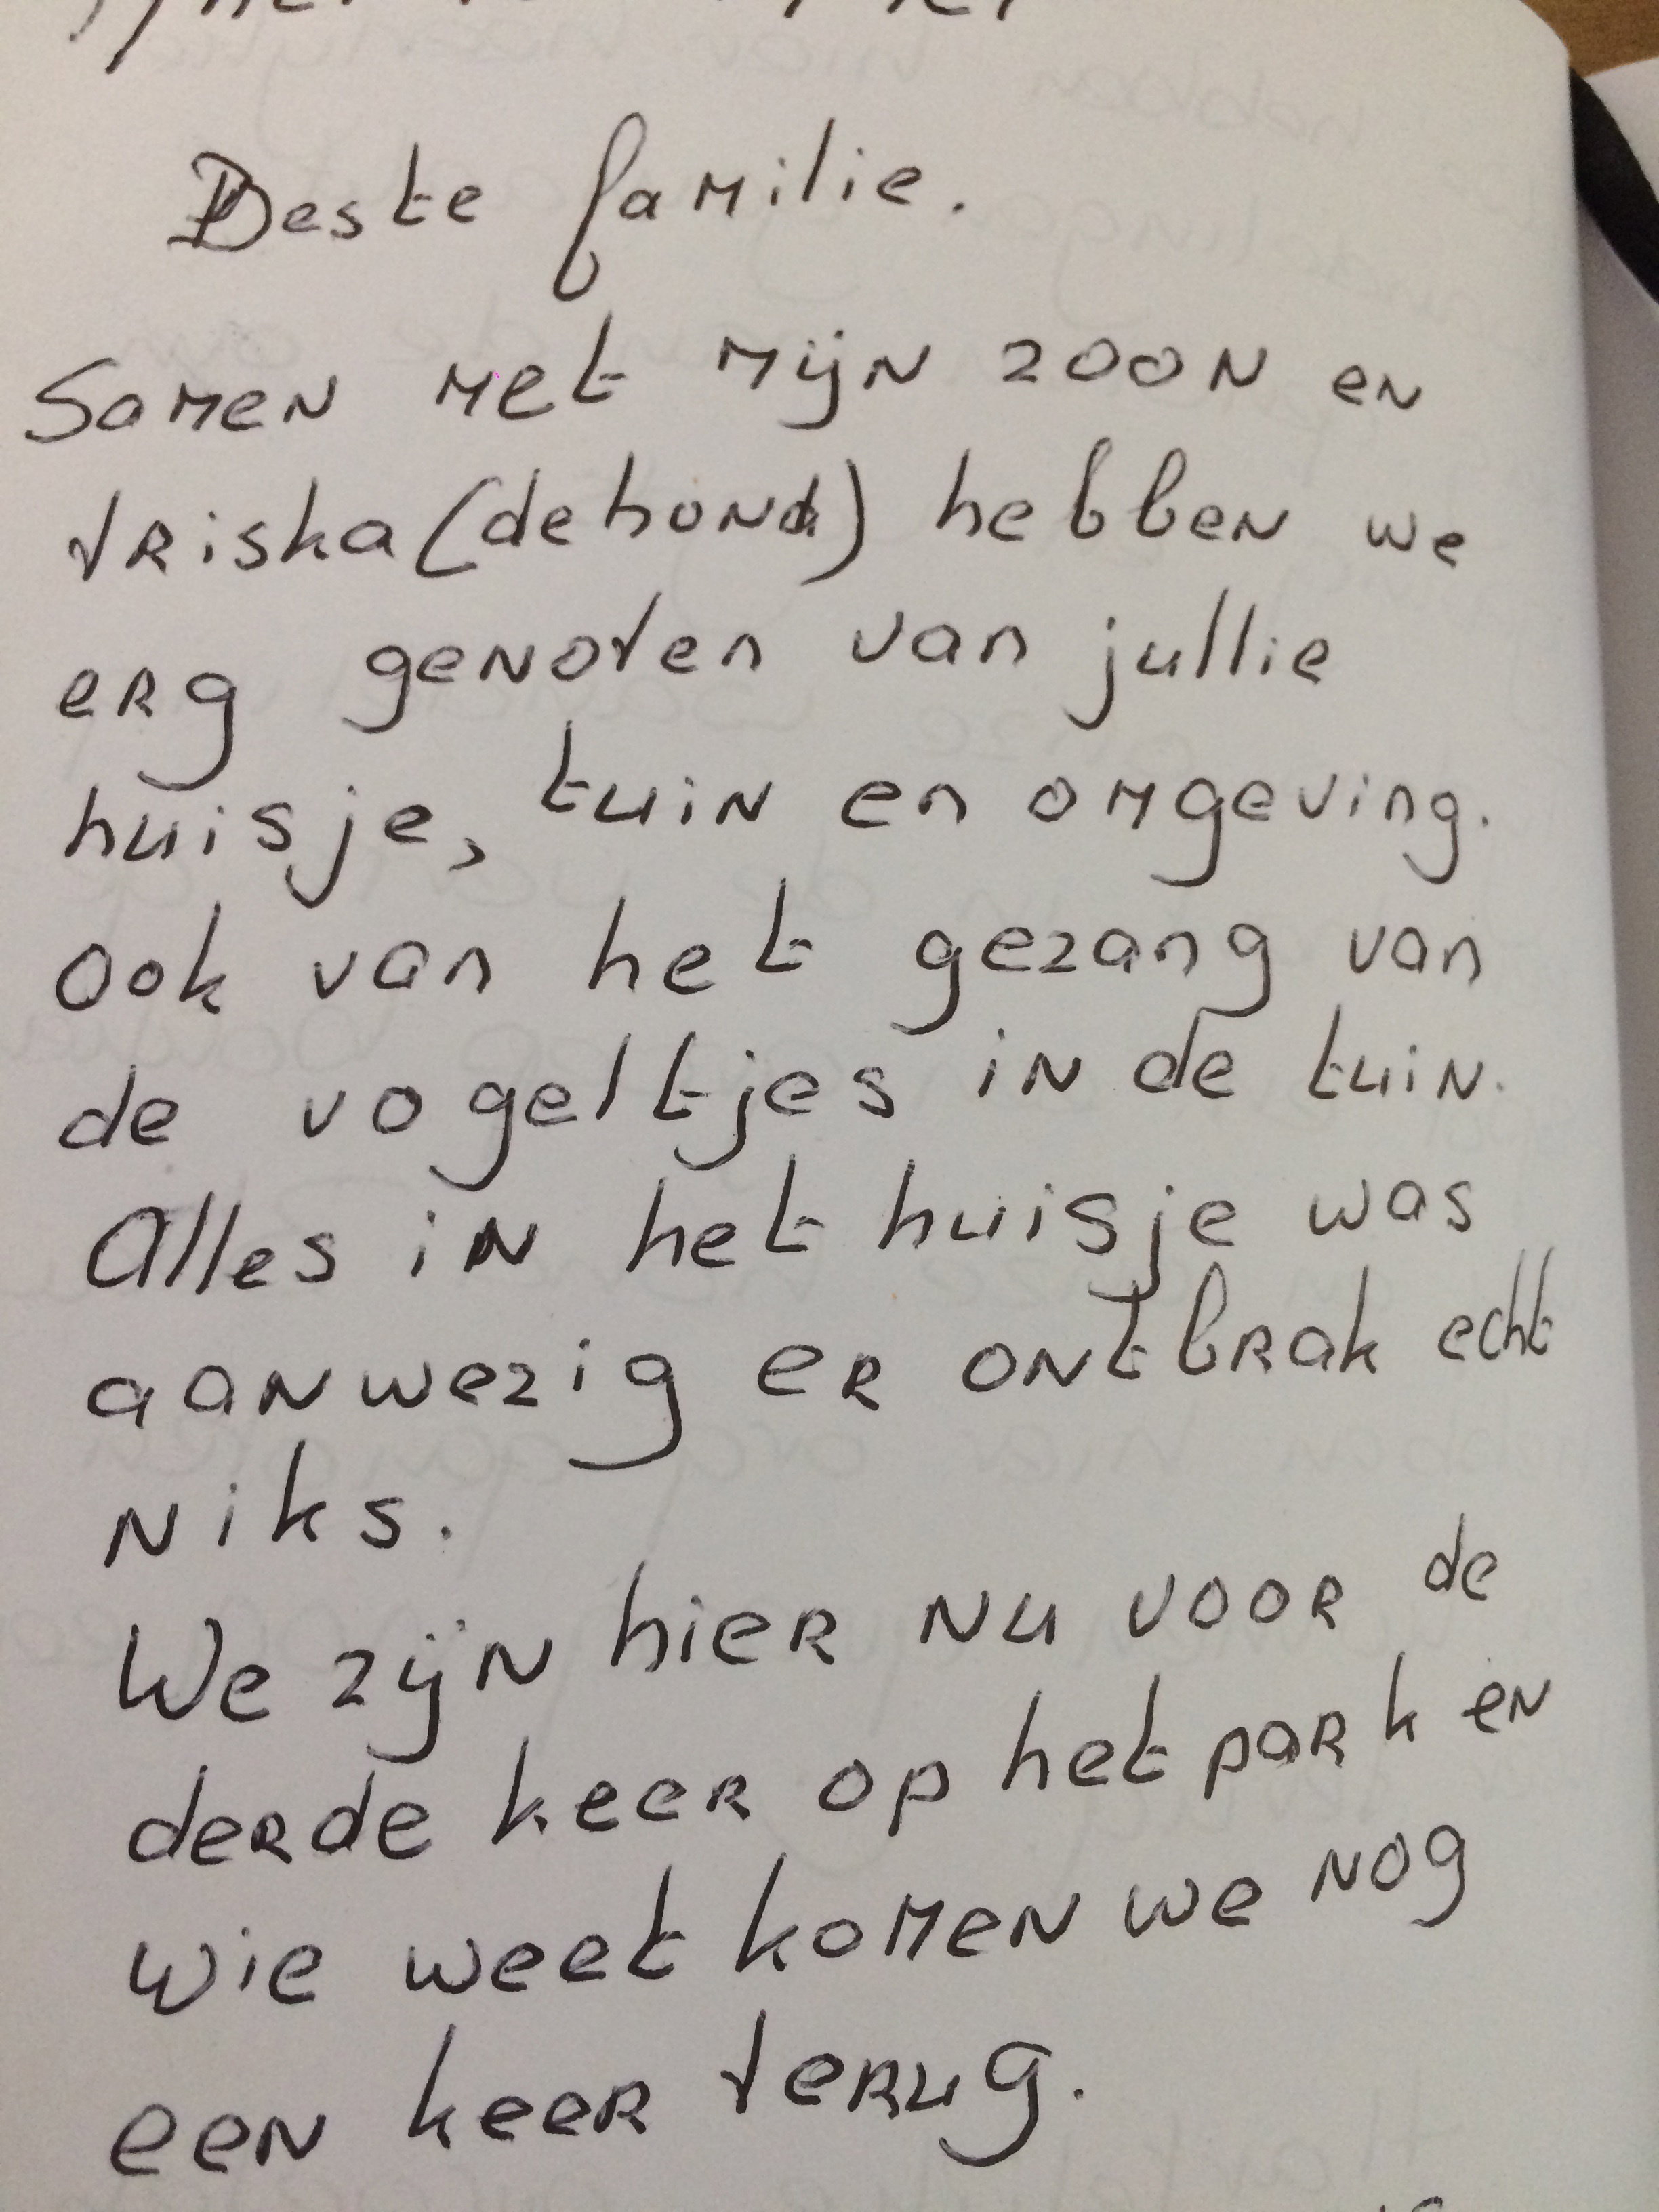 Beste familie.
Samen met mijn zoon en
Triska (de hond) hebben we
erg genoten van jullie
huisje, tuin en omgeving.
Ook van het gezang van
de vogeltjes in de tuin.
Alles in het huisje was
aanwezig er ontbrak echt
niks.
We zijn hier nu voor de
derde keer op het park en
wie weet komen we nog
een keer terug.